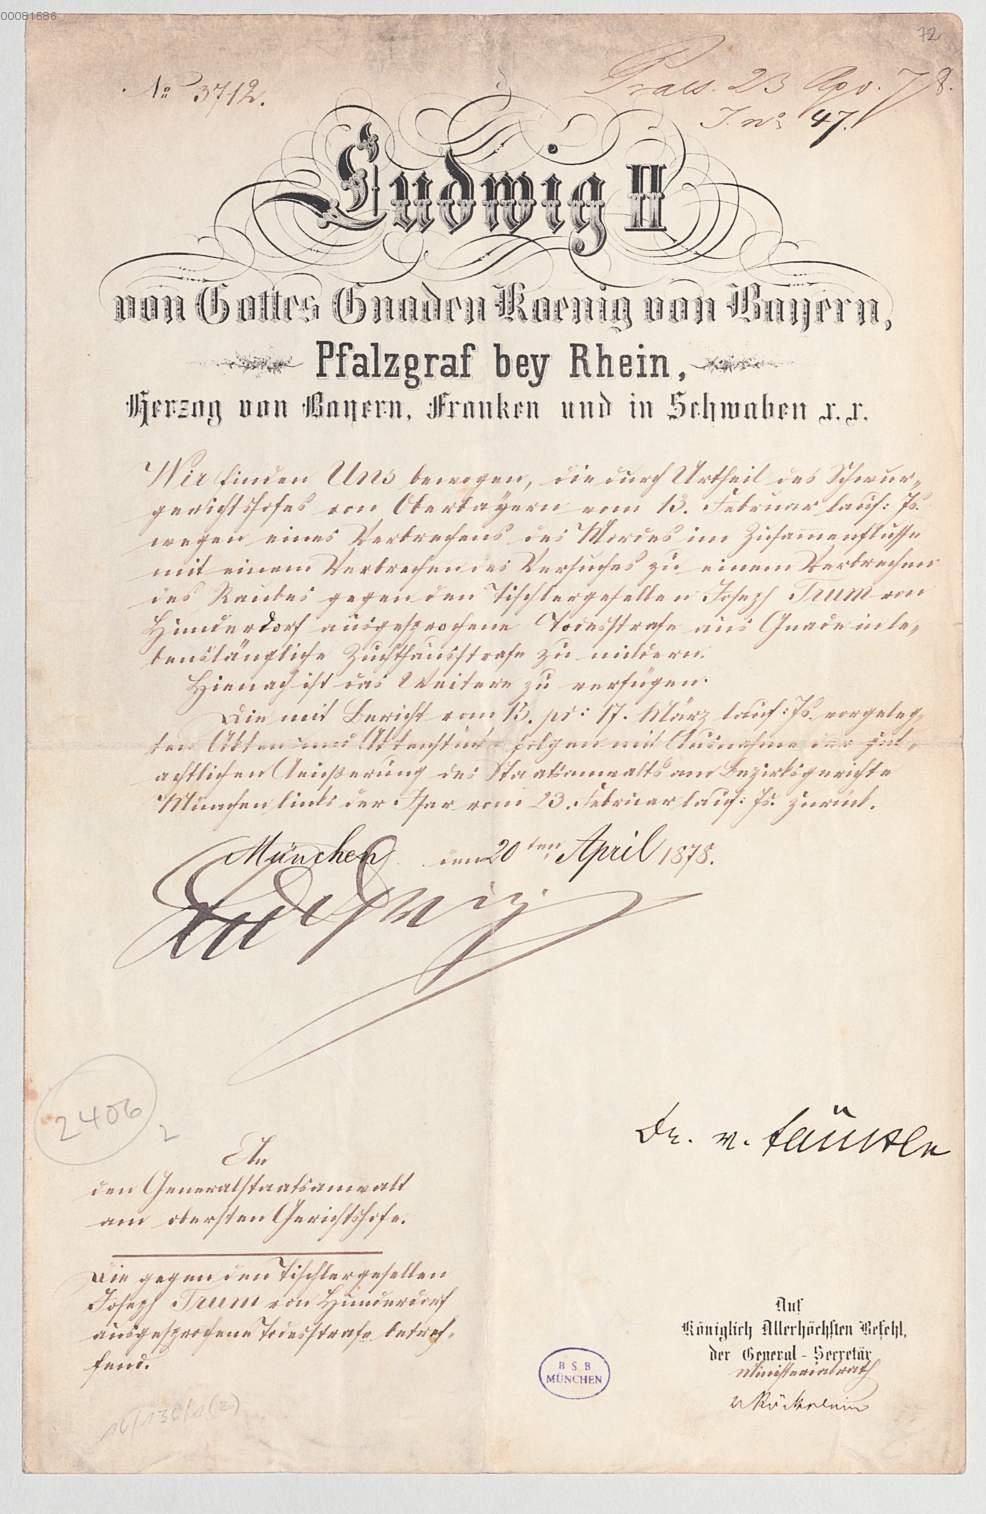 00081586
72
No 3712.
Praes. 23 Apr. 78.
J. no 47.
Ludwig II
von Gottes Gnaden Koenig von Bayern,
Pfalzgraf bey Rhein,
Herzog von Bayern, Franken und in Schwaben x. x.
Wir finden Uns bewogen, die durch Urtheil des Schwur-
gerichtshofes von Oberbayern vom 13. Februar lauf: Js.
wegen eines Verbrechens des Mordes im Zusammenflusse
mit einem Verbrechen des Versuches zu einem Verbrechen
des Raubes gegen den Tischlergesellen Joseph Trum von
Hunderdorf ausgesprochene Todesstrafe aus Gnade in le-
benslängliche Zuchthausstrafe zu mildern.
Hienach ist das Weitere zu verfügen.
Die mit Bericht vom 13. pr: 17. März lauf: Js. vorgeleg-
ten Akten und Aktenstücke folgen mit Ausnahme der gut-
achtlichen Aeußerung des Staatsanwalts am Bezirksgerichte
München links der Isar vom 23. Februar lauf: Js. zurück.
München, den 20ten April 1878.
Ludwig
2406
2
Dr. v. Fäustle
An
den Generalstaatsanwalt
am obersten Gerichtshofe.
Die gegen den Tischlergesellen
Joseph Trum von Hunderdorf
ausgesprochene Todesstrafe betref-
fend.
Auf
Königlich Allerhöchsten Befehl,
der General-Secretär
Ministerialrath
BSB
MÜNCHEN